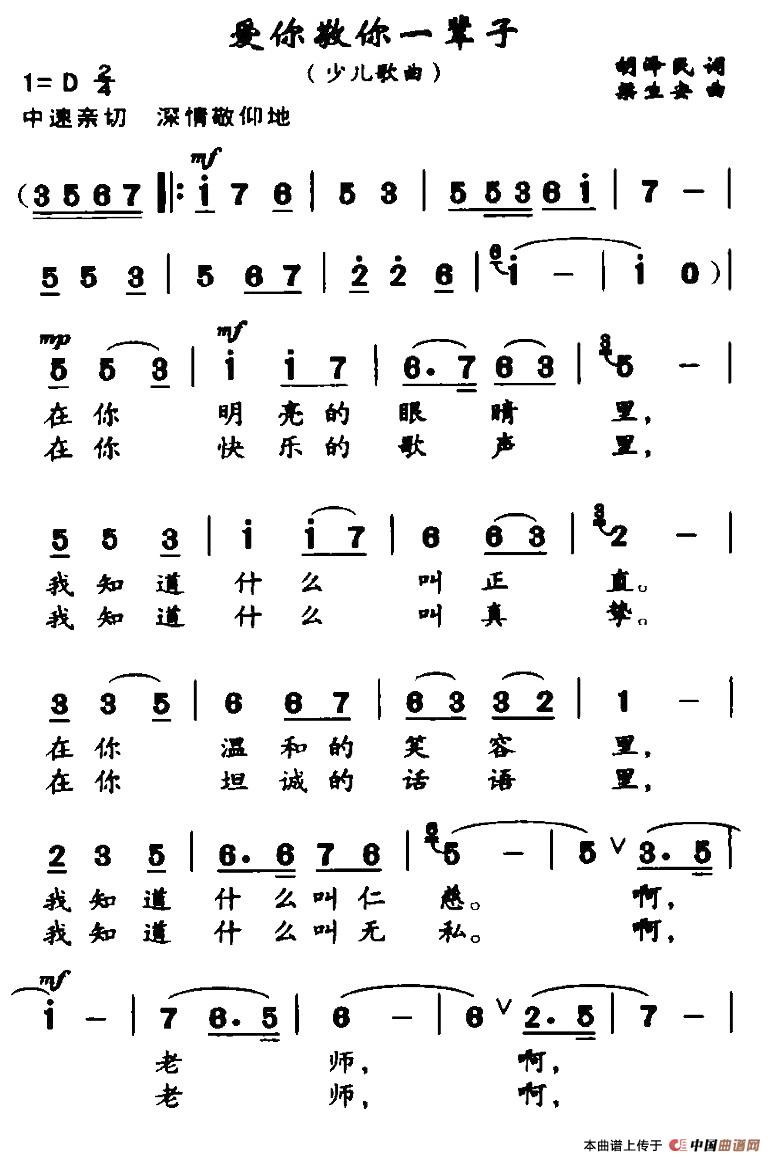 爱你敬你一辈子
（少儿歌曲）
1= D 2/4
胡泽民 词
梁立安 曲
中速亲切 深情敬仰地
mf
（3 5 6 7 ‖: i 7 6 | 5 3 | 5 5 3 6 i | 7 － |
5 5 3 | 5 6 7 | 2 2 6 | 6 i － | i 0 ）|
mp mf
5 5 3 | i i 7 | 6. 7 6 3 | 3 5 － |
在你 明亮的眼睛里，
在你 快乐的歌声里，
5 5 3 | i i 7 | 6 6 3 | 3 2 － |
我知道 什么 叫正直。
我知道 什么 叫真挚。
3 3 5 | 6 6 7 | 6 3 3 2 | 1 － |
在你 温和的笑容里，
在你 坦诚的话语里，
2 3 5 | 6. 6 7 6 | 6 5 － | 5 V 3. 5 |
我知道 什么叫仁慈。 啊，
我知道 什么叫无私。 啊，
mf
i － | 7 6. 5 | 6 － | 6 V 2. 5 | 7 － |
老师， 啊，
老师， 啊，
本曲谱上传于 中国曲谱网